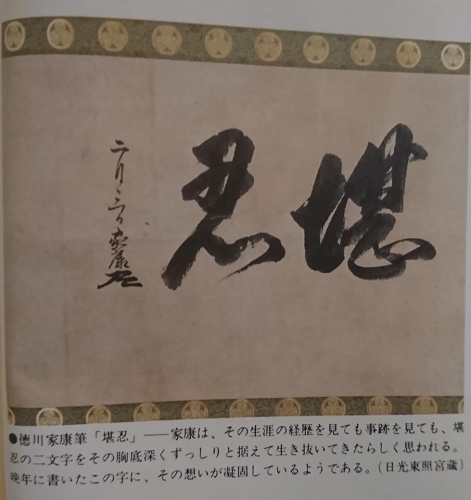 堪忍
二月三日
家康
●徳川家康筆「堪忍」――家康は、その生涯の経歴を見ても事跡を見ても、堪
忍の二文字をその胸底深くずっしりと据えて生き抜いてきたらしく思われる。
晩年に書いたこの字に、その想いが凝固しているようである。(日光東照宮蔵)